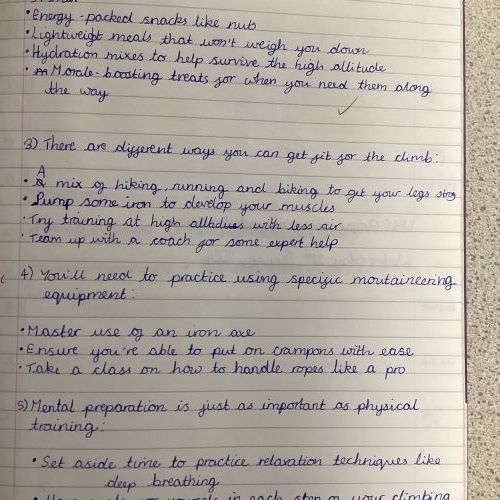 • Energy-packed snacks like nuts
• Lightweight meals that won't weigh you down
• Hydration mixes to help survive the high allitude
• Morale-boosting treats for when you need them along
the way
3) There are different ways you can get fit for the climb:
• A mix of hiking, running and biking to get your legs strong
• Pump some iron to develop your muscles
• Try training at high altitudes with less air
• Team up with a coach for some expert help
4) You'll need to practice using specific moutaineering
equipment:
• Master use of an iron axe
• Ensure you're able to put on crampons with ease
• Take a class on how to handle ropes like a pro
5) Mental preparation is just as important as physical
training:
• Set aside time to practice relaxation techniques like
deep breathing
in each step of your climbing